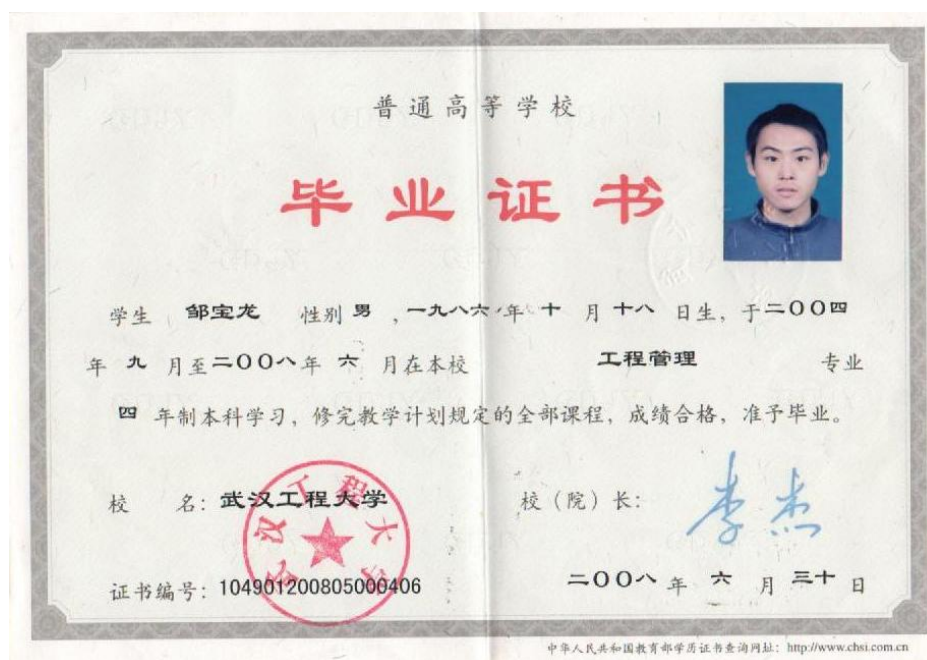 普通高等学校
毕业证书
学生 邹宝龙 性别 男 ,一九八六年 十 月 十八 日生，于二〇〇四
年 九 月至二〇〇八年 六 月在本校 工程管理 专业
四 年制本科学习，修完教学计划规定的全部课程，成绩合格，准予毕业。
校 名：武汉工程大学 校（院）长：李杰
武汉工程大学
证书编号：104901200805000406 二〇〇八 年 六 月 三十 日
中华人民共和国教育部学历证书查询网址：http://www.chsi.com.cn